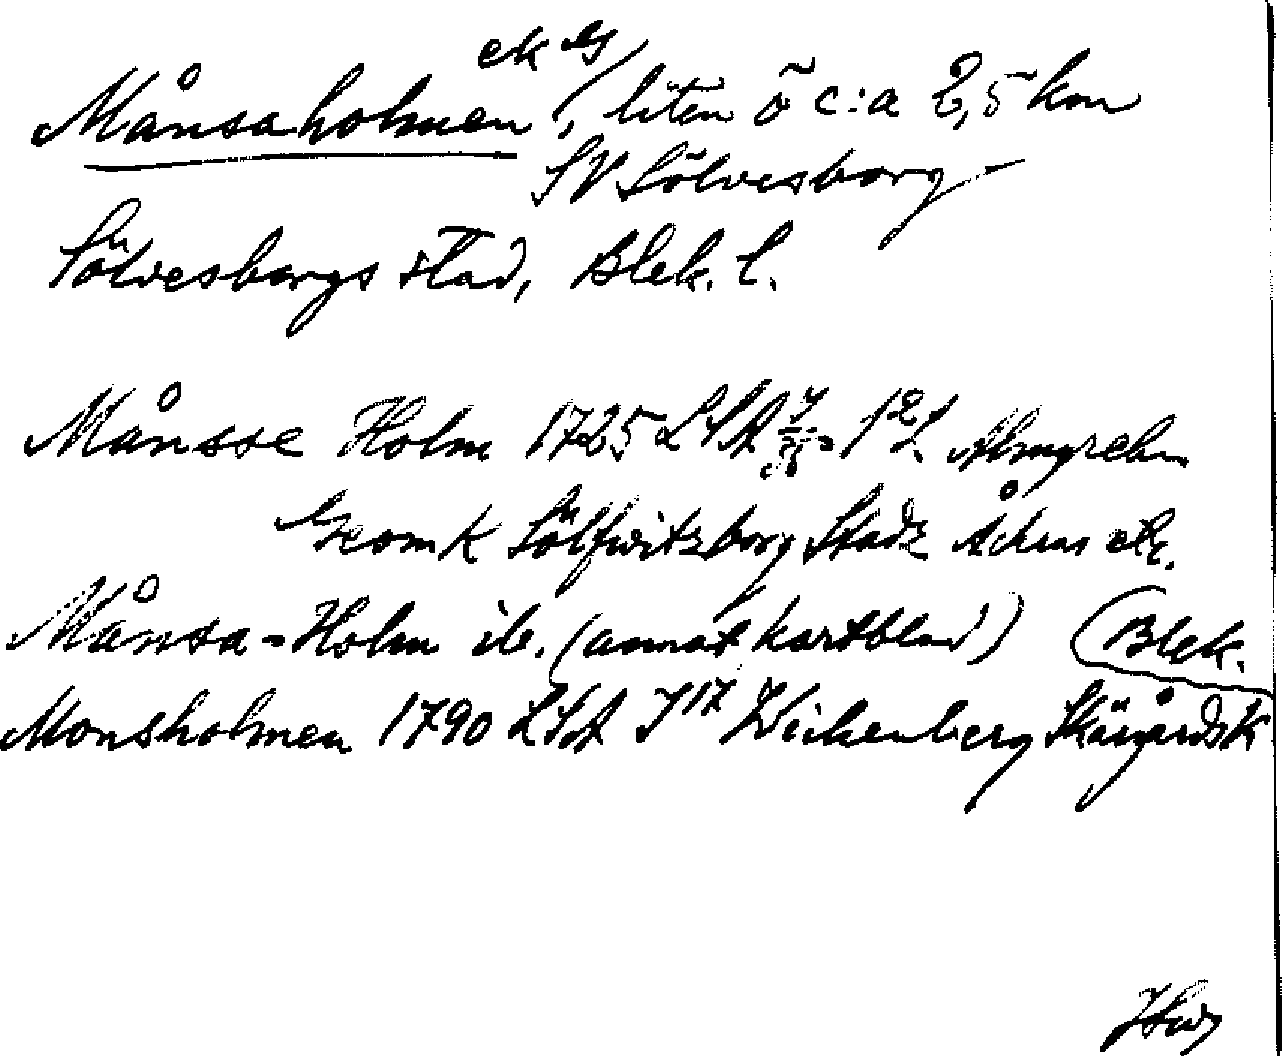 ek G
Månsaholmen, liten ö c:a 2,5 km
SV Sölvesborg
Sölvesborgs stad, Blek. l.
Månsse Holm 1725 LSA 1 Almgrehn
Geom K Sölfwitzborg Stadz Åkrar etc.
Månsa-Holm ib. (annat kartblad) (Blek.
Monsholmen 1790 LSA J17 Wickenberg SkärgårdsK